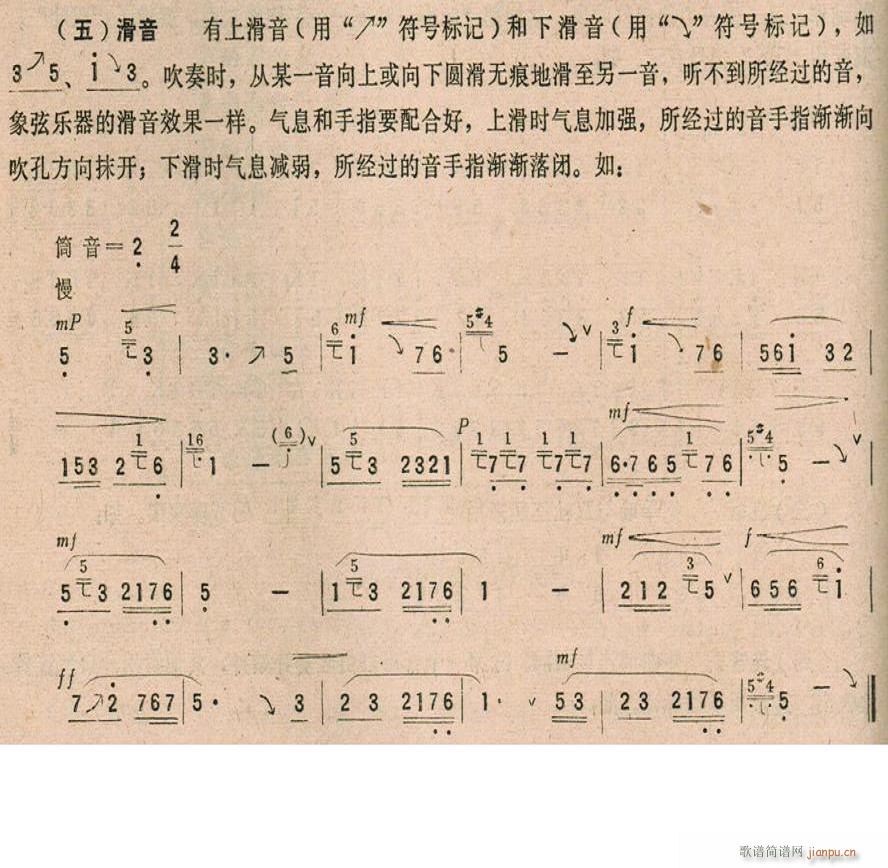 （五）滑音　有上滑音（用“↗”符号标记）和下滑音（用“↘”符号标记），如
3↗5、i↘3。吹奏时，从某一音向上或向下圆滑无痕地滑至另一音，听不到所经过的音，
象弦乐器的滑音效果一样。气息和手指要配合好，上滑时气息加强，所经过的音手指渐渐向
吹孔方向抹开；下滑时气息减弱，所经过的音手指渐渐落闭。如：
筒音=2 2/4
慢
mP mf f
5 5 3 | 3· ↗ 5 | 6 i ↘ 76 | 5#4 5 — ↘ v | 3 i ↘ 76 | 56i 32 |
P mf
153 2 1 6 | 16 1 — (6) v | 5 5 3 2321 | 1 7 1 7 1 7 1 7 | 6·765 1 76 | 5#4 5 — ↘ v |
mf mf f
5 5 3 2176 | 5 — | 1 5 3 2176 | 1 — | 212 3 5 v | 656 6 i |
ff mf
7↗2 767 | 5· ↘ 3 | 2 3 2176 | 1· v 53 | 23 2176 | 5#4 5 — ↘ ‖
歌谱简谱网 jianpu.cn